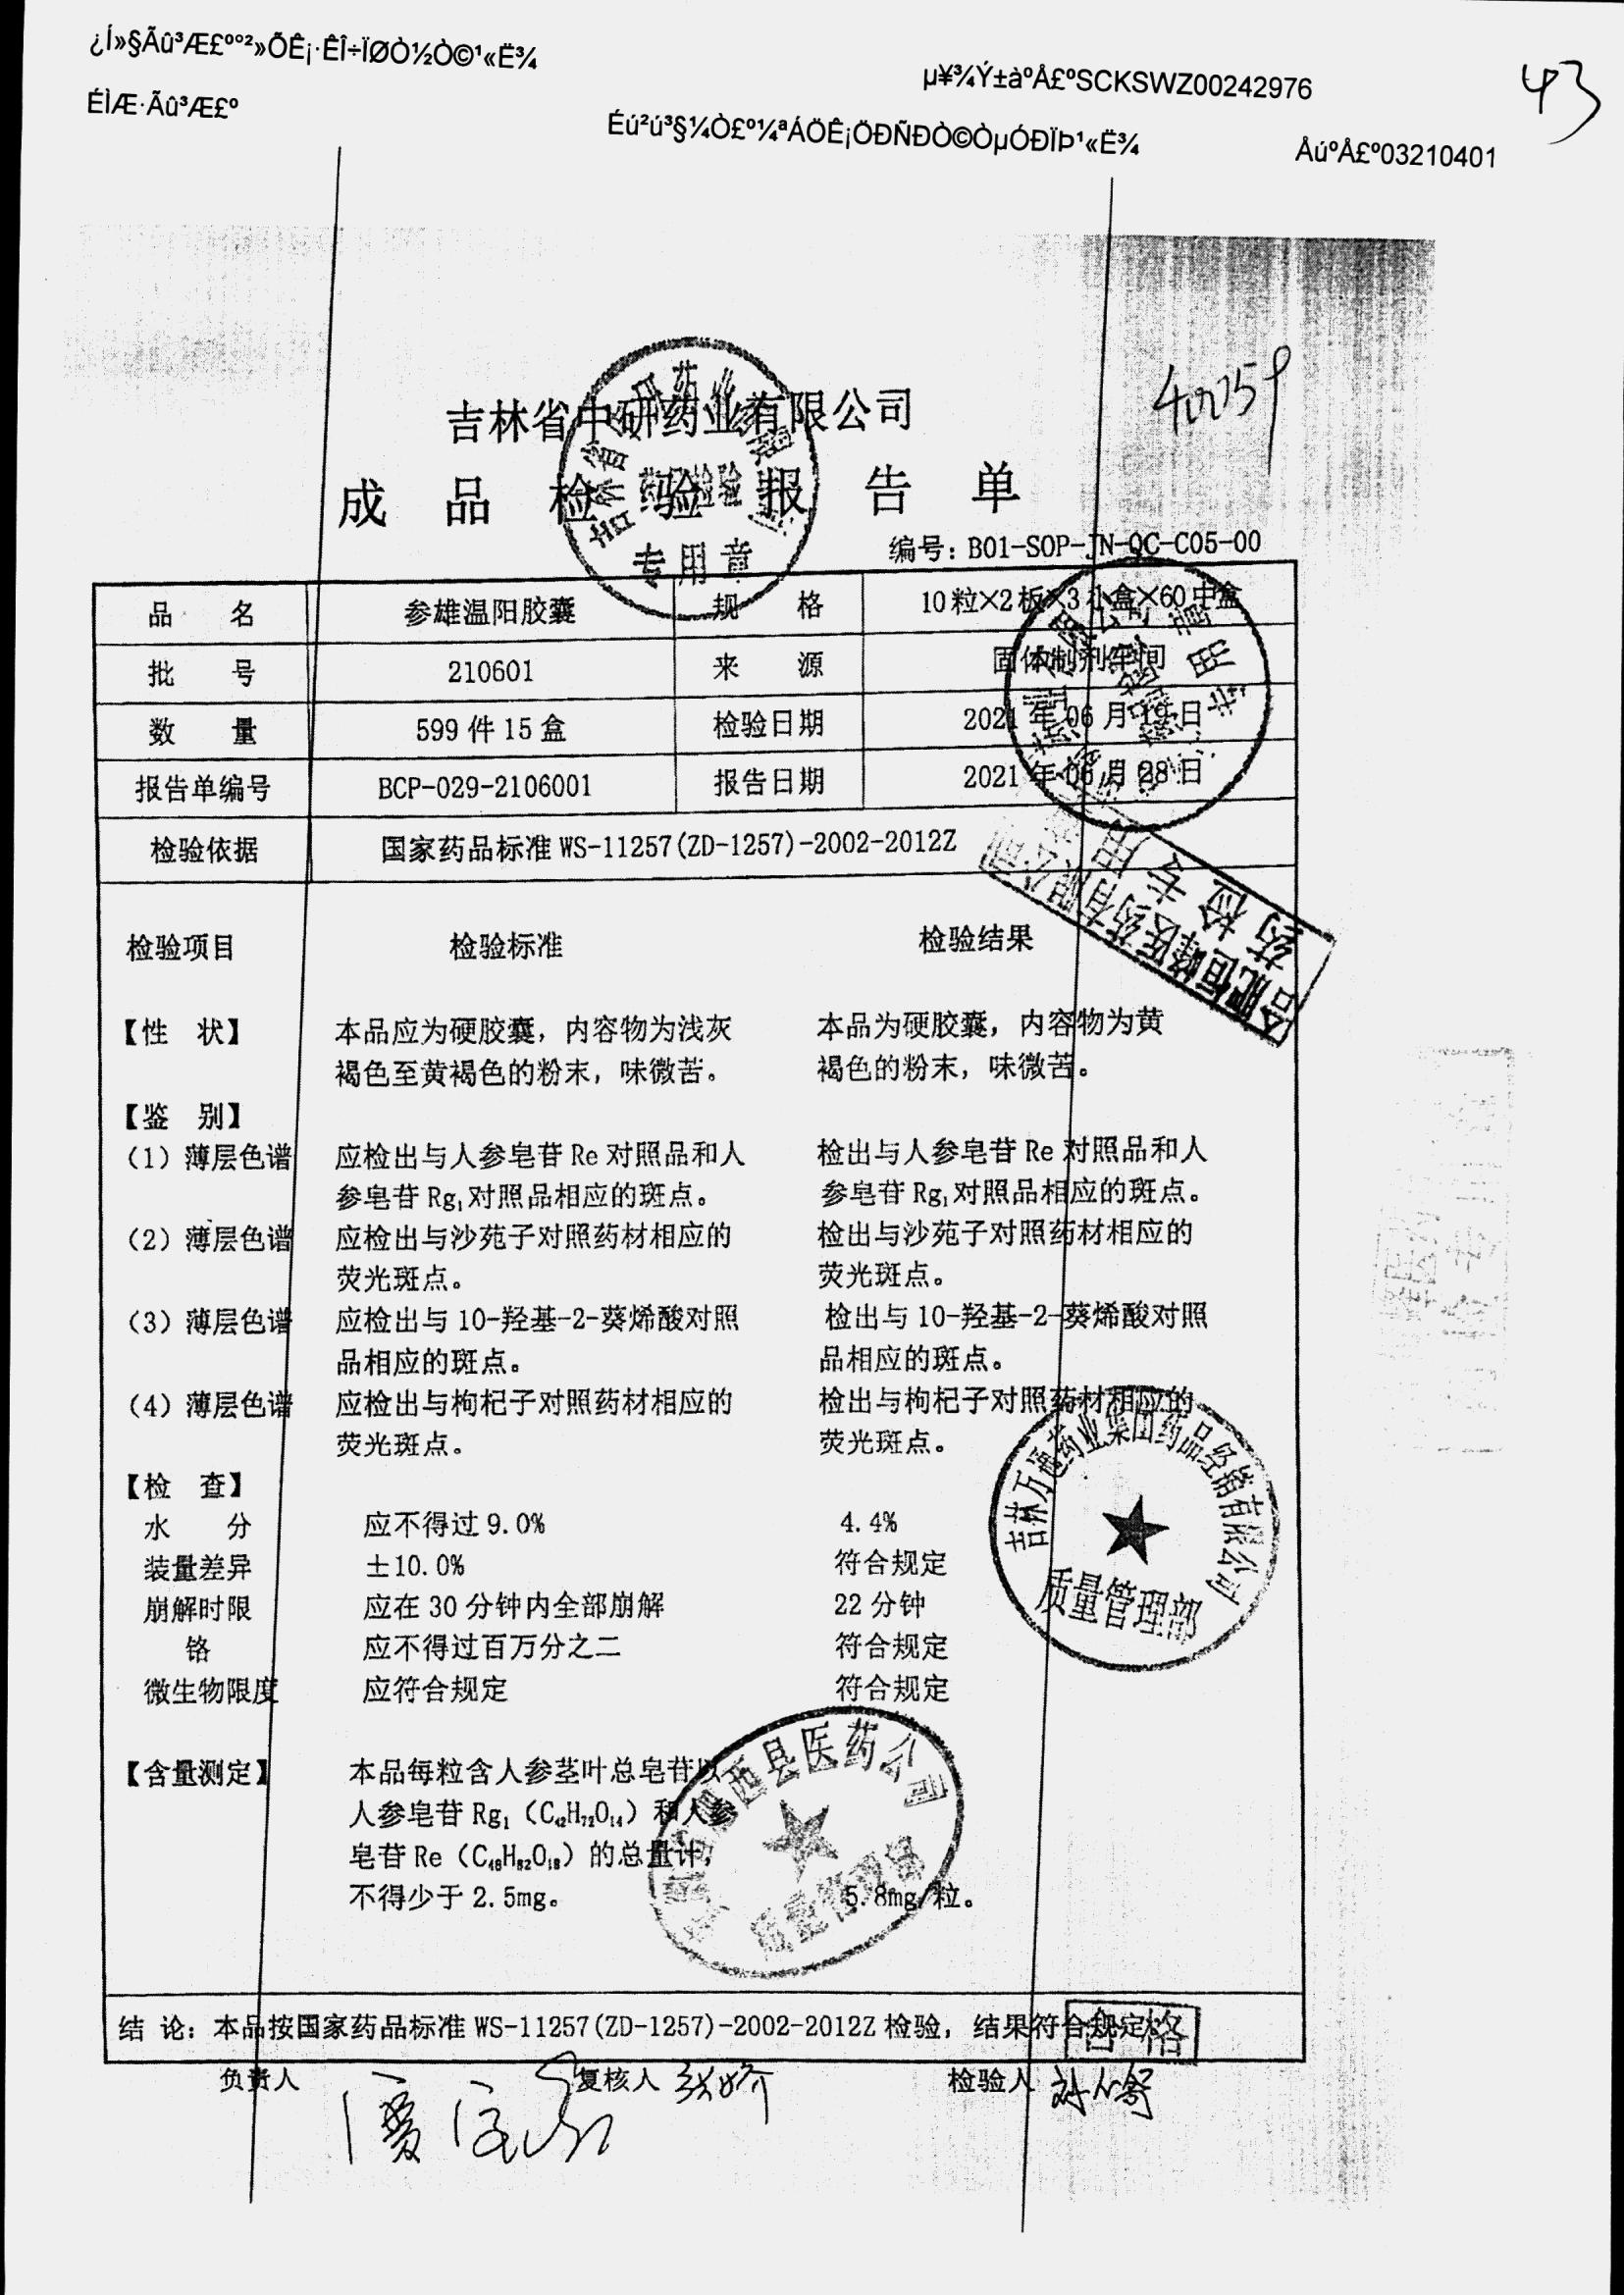 ¿Í»§Ãû³Æ£º°²»ÕÊ¡·ÊÎ÷ÏØÒ½Ò©¹«Ë¾
µ¥¾Ý±àºÅ£ºSCKSWZ00242976
43
ÉÌÆ·Ãû³Æ£º
Éú²ú³§¼Ò£º¼ªÁÖÊ¡ÖÐÑÐÒ©ÒµÓÐÏÞ¹«Ë¾
ÅúºÅ£º03210401
吉林省中研药业有限公司
成品检验报告单
专用章
编号：B01-SOP-JN-QC-C05-00
品 名 参雄温阳胶囊 规 格 10粒×2板×3小盒×60中盒
批 号 210601 来 源 固体制剂车间
数 量 599件15盒 检验日期 2021年06月19日
报告单编号 BCP-029-2106001 报告日期 2021年06月28日
检验依据 国家药品标准WS-11257(ZD-1257)-2002-2012Z
合肥恒峰医药有限公司
药检专用
检验项目 检验标准 检验结果
【性 状】 本品应为硬胶囊，内容物为浅灰 本品为硬胶囊，内容物为黄
褐色至黄褐色的粉末，味微苦。 褐色的粉末，味微苦。
【鉴 别】
（1）薄层色谱 应检出与人参皂苷Re对照品和人 检出与人参皂苷Re对照品和人
参皂苷Rg₁对照品相应的斑点。 参皂苷Rg₁对照品相应的斑点。
（2）薄层色谱 应检出与沙苑子对照药材相应的 检出与沙苑子对照药材相应的
荧光斑点。 荧光斑点。
（3）薄层色谱 应检出与10-羟基-2-葵烯酸对照 检出与10-羟基-2-葵烯酸对照
品相应的斑点。 品相应的斑点。
（4）薄层色谱 应检出与枸杞子对照药材相应的 检出与枸杞子对照药材相应的
荧光斑点。 荧光斑点。
【检 查】
水 分 应不得过9.0% 4.4%
装量差异 ±10.0% 符合规定
崩解时限 应在30分钟内全部崩解 22分钟
铬 应不得过百万分之二 符合规定
微生物限度 应符合规定 符合规定
吉林万通药业集团药品经销有限公司
质量管理部
【含量测定】 本品每粒含人参茎叶总皂苷以
人参皂苷Rg₁（C₄₂H₇₂O₁₄）和人参
皂苷Re（C₄₈H₈₂O₁₈）的总量计，
不得少于2.5mg。 5.8mg/粒。
肥西县医药公司
质量管理部
结 论：本品按国家药品标准WS-11257(ZD-1257)-2002-2012Z检验，结果符合规定
合格
负责人 复核人 检验人